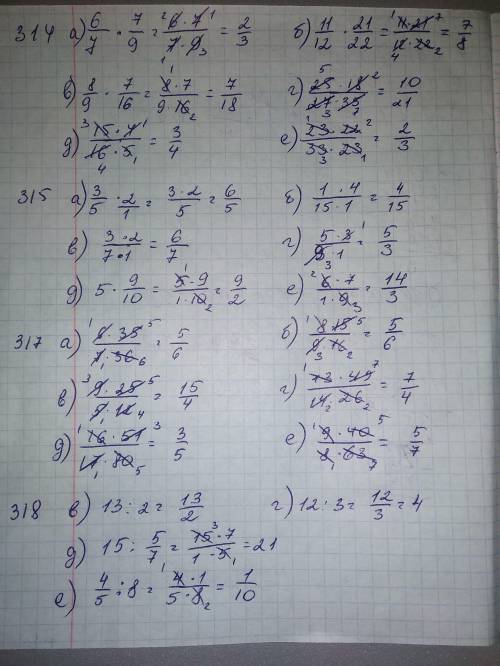 314 а) 6/7 · 7/9 = 6·7/7·9 = 2/3 б) 11/12 · 21/22 = 11·21/12·22 = 7/8
в) 8/9 · 7/16 = 8·7/9·16 = 7/18 г) 25·18/27·35 = 10/21
д) 15·4/16·5 = 3/4 е) 23·22/33·23 = 2/3
315 а) 3/5 · 2/1 = 3·2/5 = 6/5 б) 1·4/15·1 = 4/15
в) 3·2/7·1 = 6/7 г) 5·3/9·1 = 5/3
д) 5 · 9/10 = 5·9/1·10 = 9/2 е) 6·7/1·9 = 14/3
317 а) 8·35/7·36 = 5/6 б) 8·15/9·16 = 5/6
в) 9·25/5·12 = 15/4 г) 13·49/14·26 = 7/4
д) 16·51/17·80 = 3/5 е) 9·40/8·63 = 5/7
318 в) 13 : 2 = 13/2 г) 12 : 3 = 12/3 = 4
д) 15 : 5/7 = 15·7/1·5 = 21
е) 4/5 : 8 = 4·1/5·8 = 1/10